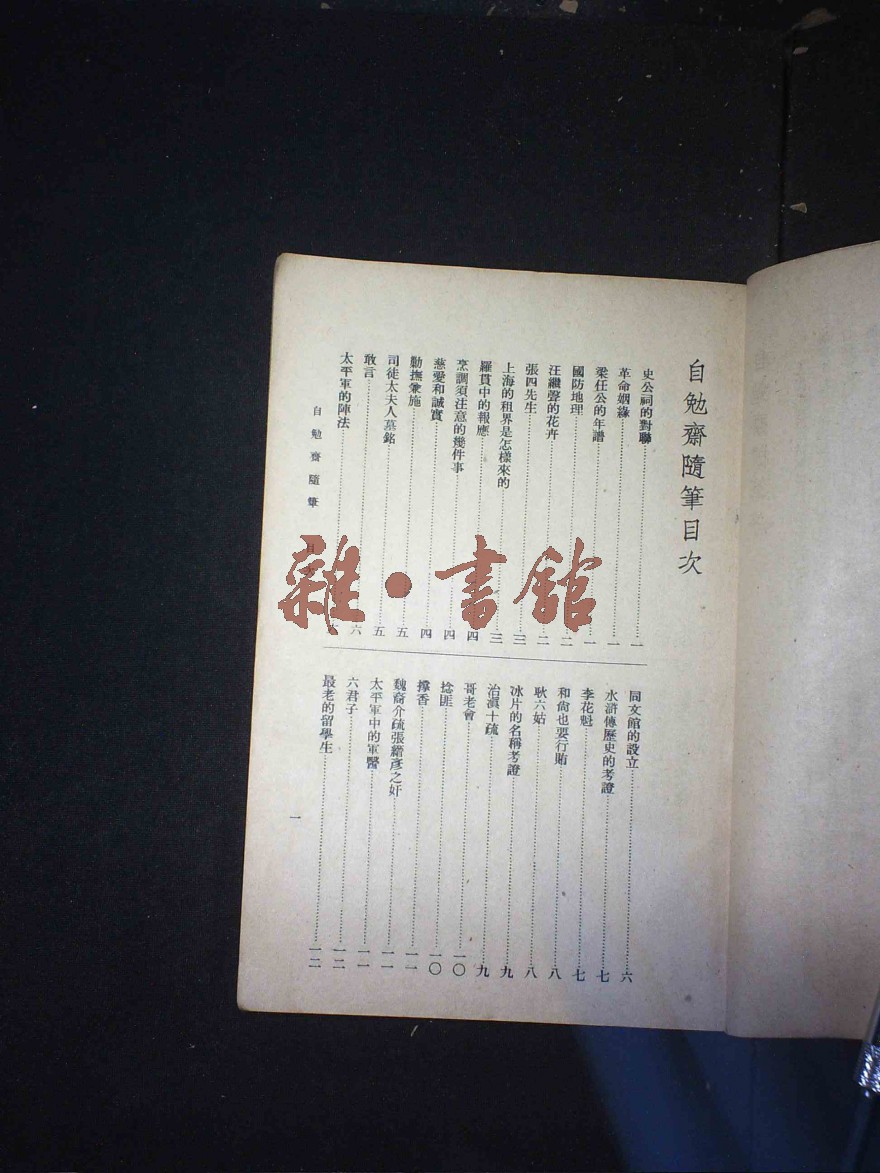 自勉齋隨筆目次
史公祠的對聯……一
革命姻緣……一
梁任公的年譜……一
國防地理……二
汪繼聲的花卉……二
張四先生……三
上海的租界是怎樣來的……三
羅貫中的報應……四
烹調須注意的幾件事……四
慈愛和誠實……四
勦撫兼施……五
司徒太夫人墓銘……五
敢言……六
太平軍的陣法……
同文館的設立……六
水滸傳歷史的考證……七
李花魁……七
和尙也要行賄……八
耿六姑……八
冰片的名稱考證……九
治滇十疏……九
哥老會……一〇
捻匪……一〇
撐香……一一
魏裔介疏張縉彥之奸……一一
太平軍中的軍醫……一一
六君子……一二
最老的留學生……一二
自勉齋隨筆 目次
一
雜·書館